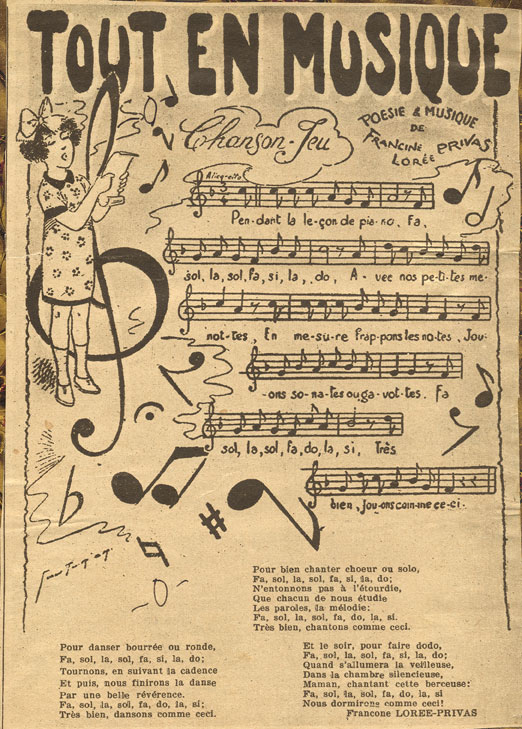 TOUT EN MUSIQUE
Chanson-Jeu
POESIE & MUSIQUE
DE
FRANCINE PRIVAS
LORÉE
Pen-dant la le-çon de pia-no. Fa,
sol, la, sol, fa, si, la, do, A-vec nos pe-ti-tes me-
not-tes, En me-su-re frap-pons les no-tes, Jou-
-ons so-na-tes ou ga-vot-tes. Fa
sol, la, sol, fa, do, la, si, Très
bien, jou-ons com-me ce-ci.
Pour bien chanter choeur ou solo,
Fa, sol, la, sol, fa, si, la, do;
N'entonnons pas à l'étourdie,
Que chacun de nous étudie
Les paroles, la mélodie:
Fa, sol, la, sol, fa, do, la, si.
Très bien, chantons comme ceci.
Pour danser bourrée ou ronde,
Fa, sol, la, sol, fa, si, la, do;
Tournons, en suivant la cadence
Et puis, nous finirons la danse
Par une belle révérence.
Fa, sol, la, sol, fa, do, la, si;
Très bien, dansons comme ceci.
Et le soir, pour faire dodo,
Fa, sol, la, sol, fa, si, la, do;
Quand s'allumera la veilleuse,
Dans la chambre silencieuse,
Maman, chantant cette berceuse:
Fa, sol, la, sol, fa, do, la, si
Nous dormirons comme ceci!
Francone LOREE-PRIVAS